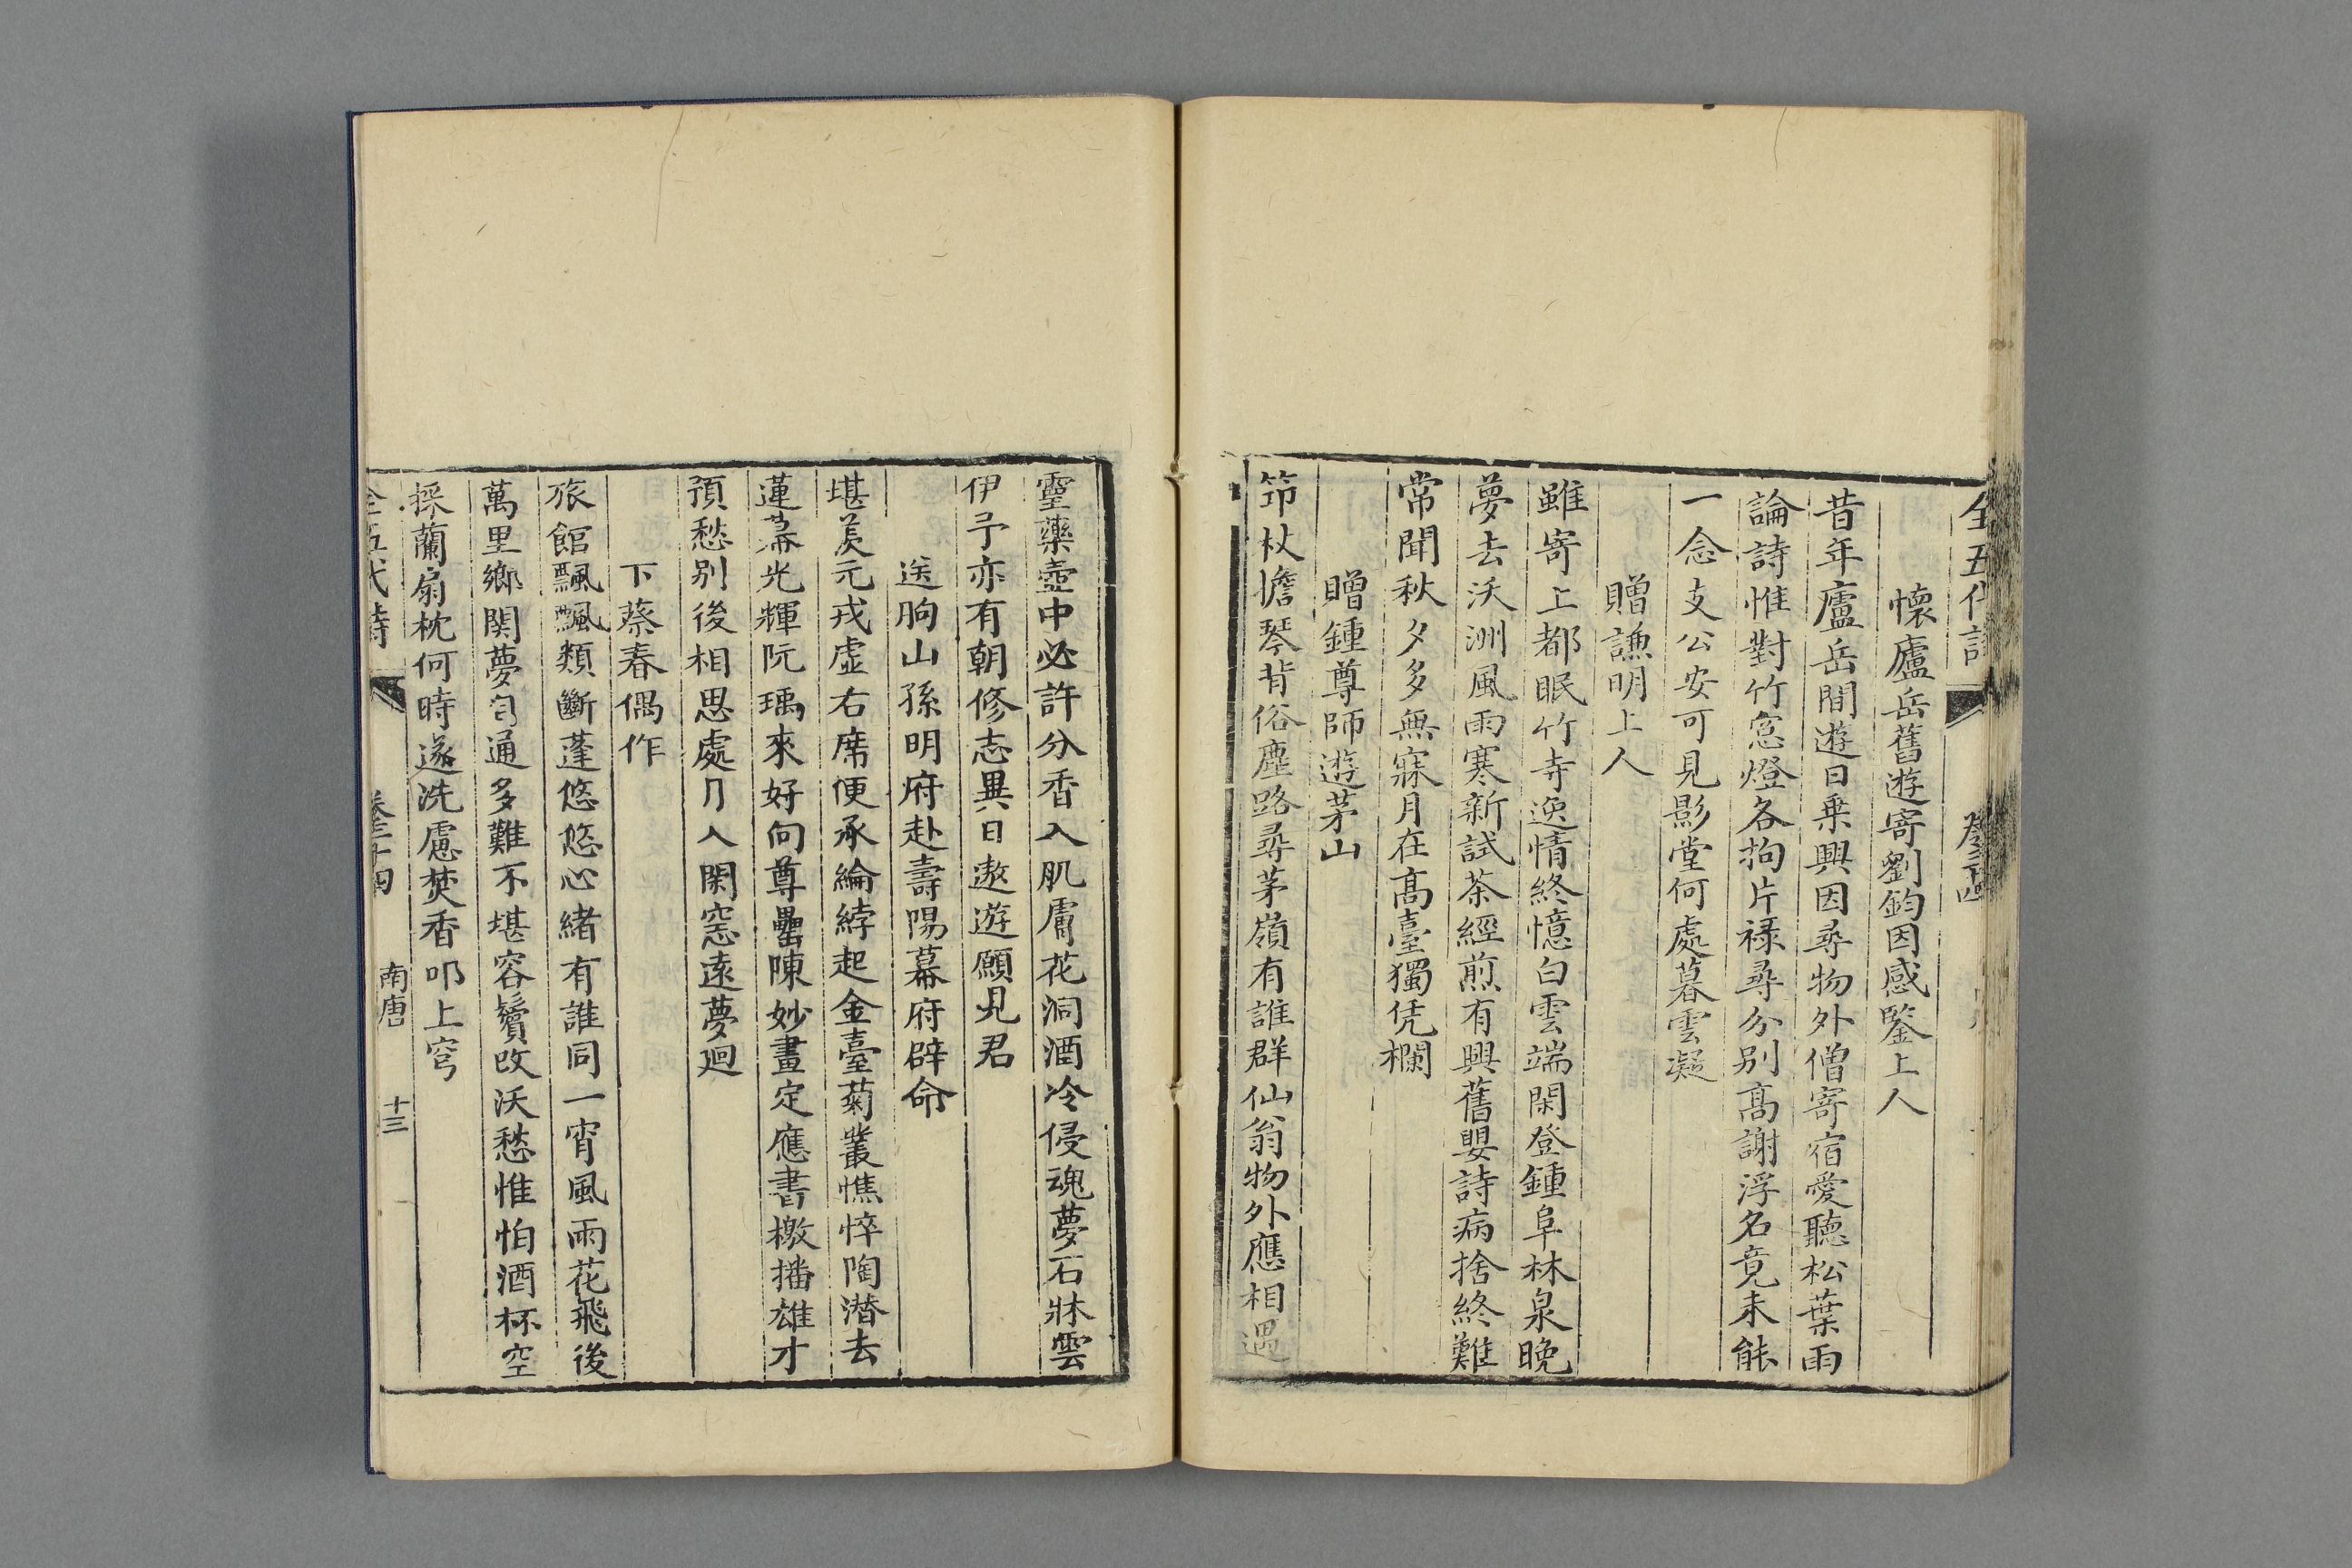 全五代詩
懷廬岳舊遊寄劉鈞因感鑒上人
昔年廬岳間遊日乗興因尋物外僧寄宿愛聽松葉雨
論詩惟對竹窻燈各拘片禄尋分别髙謝浮名竟未能
一念支公安可見影堂何處暮雲凝
贈謙明上人
雖寄上都眠竹寺逸情終憶白雲端閑登鍾阜林泉晩
夢去沃洲風雨寒新試茶經煎有興舊嬰詩病捨終難
常聞秋夕多無寐月在髙臺獨凭欄
贈鍾尊師遊茅山
笻杖擔琴背俗塵路尋茅嶺有誰群仙翁物外應相遇
靈藥壺中必許分香入肌膚花洞酒冷侵魂夢石牀雲
伊予亦有朝修志異日遨遊願見君
送朐山孫明府赴壽陽幕府辟命
堪羨元戎虛右席便承綸綍起金臺菊叢憔悴陶潜去
蓮幕光輝阮瑀來好向尊罍陳妙畫定應書檄播雄才
預愁别後相思處月入閑窓遠夢迴
下蔡春偶作
旅館飄飄類斷蓬悠悠心緒有誰同一宵風雨花飛後
萬里鄉関夢自通多難不堪容鬢改沃愁惟怕酒杯空
採蘭扇枕何時遂洗慮焚香叩上穹
全五代詩 卷三十四 南唐 十三